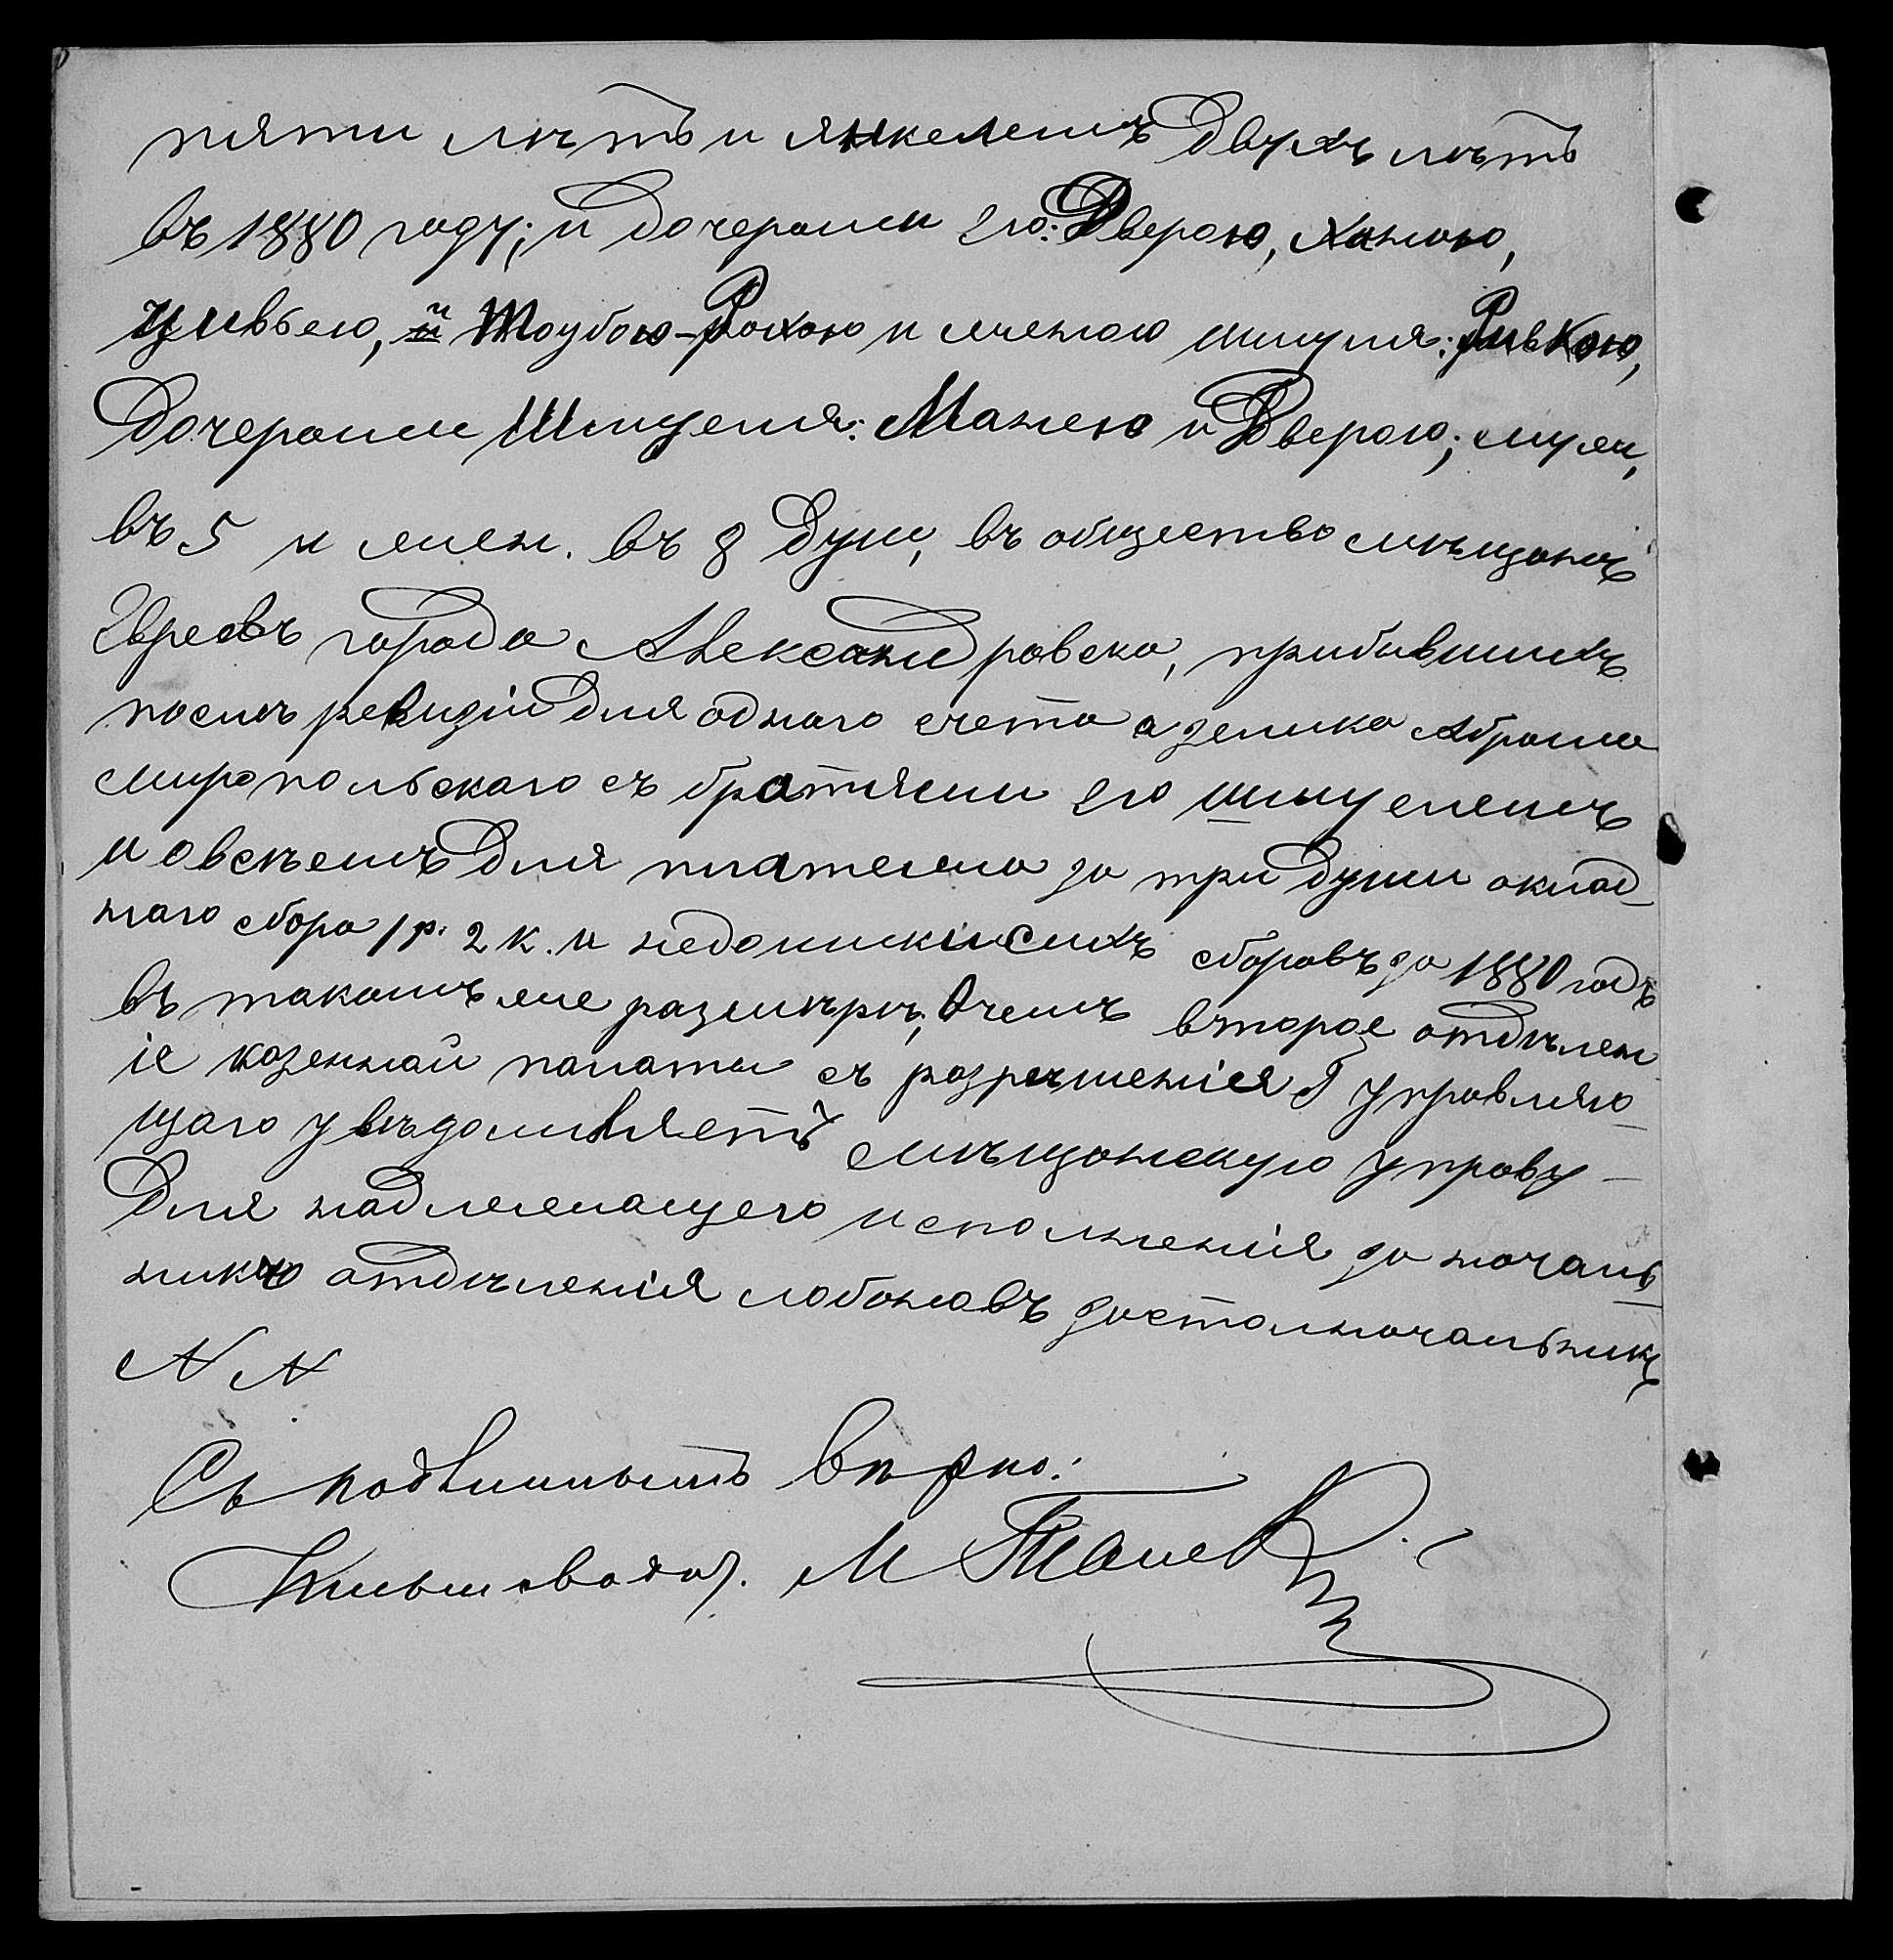 пяти лѣтъ и Янкелемъ двухъ лѣтъ
въ 1880 году; и дочерами его: Дверо­ю, Ханою,
Цивьею, и Таубою-Рохою и женою Шмуля: Ривкою,
дочерами Шмуеля: Манею и Дверою; муж,
въ 5 и жен. въ 8 душ, въ общество мѣщанъ
Евреевъ города Александровска, прибывшихъ
послѣ ревизіи для одного счета Азелика Абрама
Миропольскаго съ братіями его Шмуелемъ
и Овсѣемъ для платежа за три души оклад-
наго сбора 1 р. 2 к. и недоимки сихъ сборовъ за 1880 годъ
въ такомъ же размѣрѣ, о чемъ второе отдѣлен
іе казенной палаты съ разрѣшенія Г Управляю-
щаго увѣдомляетъ мѣщанскую управу -
для надлежащаго исполненія за началь-
ника отдѣленія Лобановъ за столоначальника
N N
Съ подлиннымъ вѣрно:
Письмоводит. М